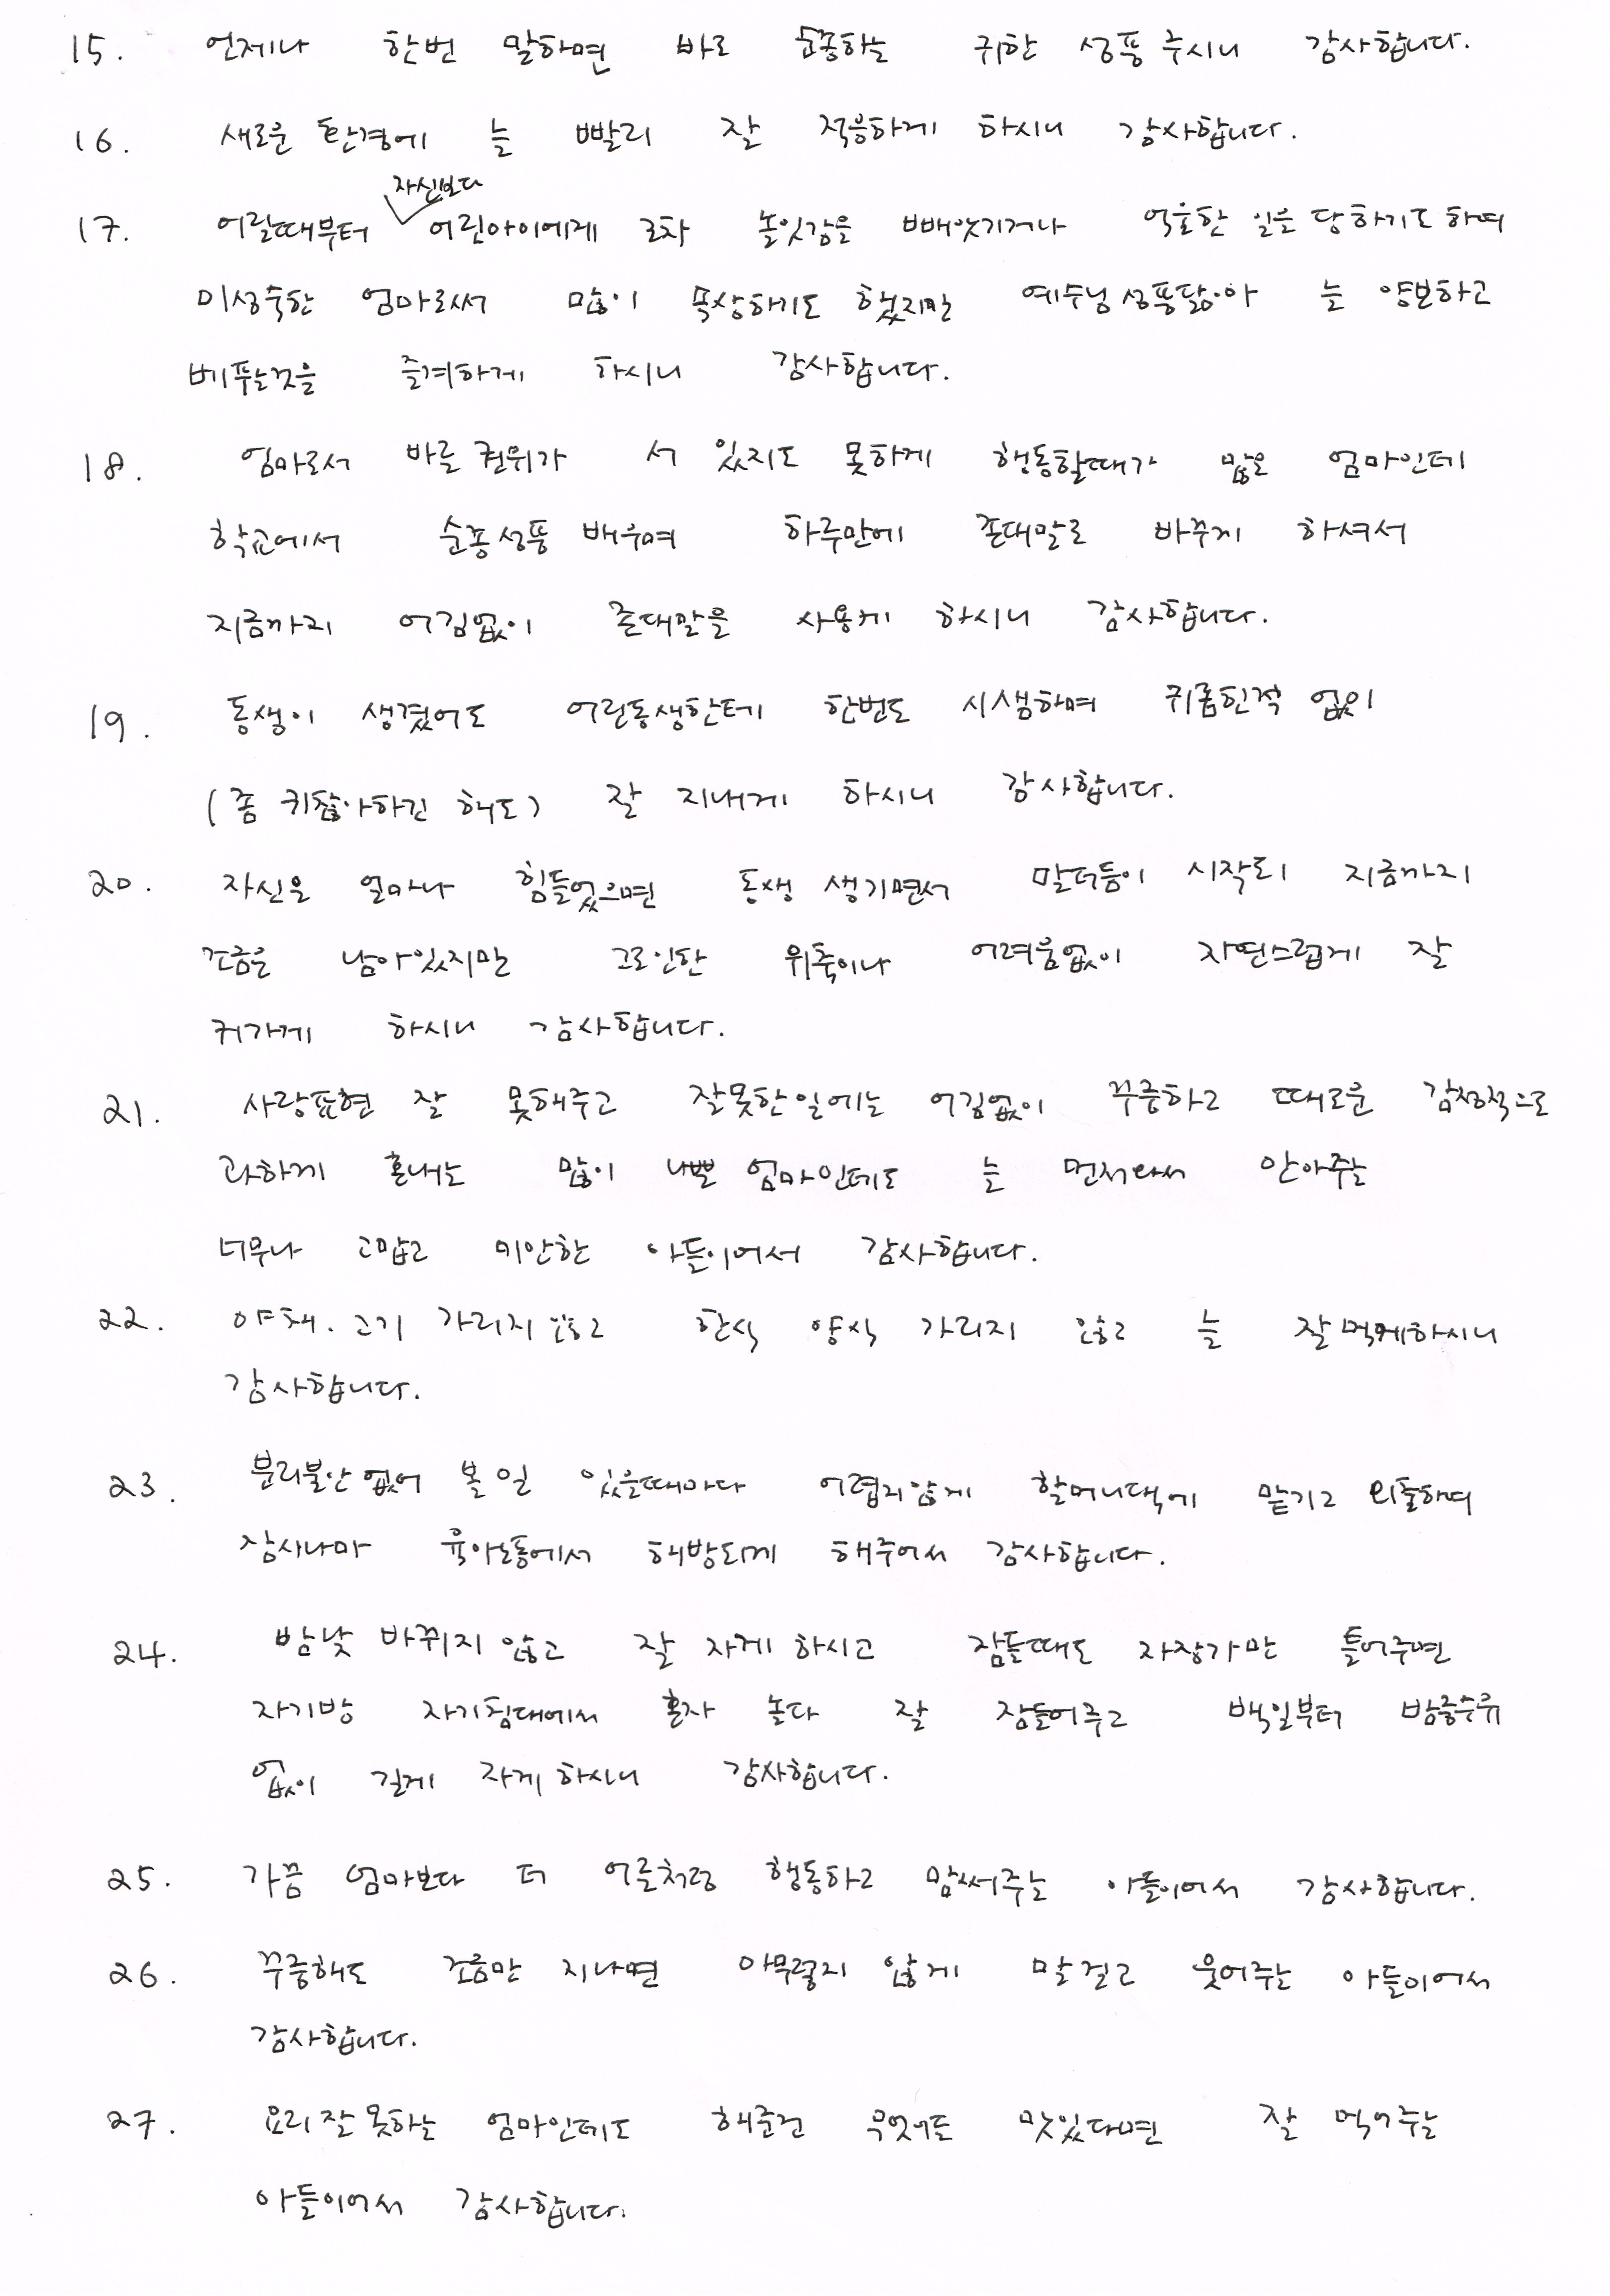 15. 언제나 한번 말하면 바로 순종하는 귀한 성품 주시니 감사합니다.
16. 새로운 환경에 늘 빨리 잘 적응하게 하시니 감사합니다.
자신보다
17. 어릴때부터 어린아이에게 조차 놀잇감을 빼앗기거나 억울한 일을 당하기도 하여
미성숙한 엄마로써 많이 속상하기도 했지만 예수님성품닮아 늘 양보하고
베푸는것을 즐겨하게 하시니 감사합니다.
18. 엄마로서 바른 권위가 서 있지도 못하게 행동할때가 많은 엄마인데
학교에서 순종성품 배우며 하루만에 존대말로 바꾸게 하셔서
지금까지 어김없이 존대말을 사용케 하시니 감사합니다.
19. 동생이 생겼어도 어린동생한테 한번도 시샘하며 괴롭힌적 없이
(좀 귀찮아하긴 해도) 잘 지내게 하시니 감사합니다.
20. 자신은 얼마나 힘들었으면 동생 생기면서 말더듬이 시작되 지금까지
조금은 남아있지만 그로인한 위축이나 어려움없이 자연스럽게 잘
커가게 하시니 감사합니다.
21. 사랑표현 잘 못해주고 잘못한일에는 어김없이 꾸중하고 때로운 감정적으로
과하게 혼내는 많이 나쁜 엄마인데도 늘 먼저와서 안아주는
너무나 고맙고 미안한 아들이어서 감사합니다.
22. 야채. 고기 가리지않고 한식 양식 가리지 않고 늘 잘먹게하시니
감사합니다.
23. 분리불안 없어 볼일 있을때마다 어렵지않게 할머니댁에 맡기고 외출하여
잠시나마 육아노동에서 해방되게 해주어서 감사합니다.
24. 밤낮 바뀌지 않고 잘 자게 하시고 잠들때도 자장가만 틀어주면
자기방 자기침대에서 혼자 놀다 잘 잠들어주고 백일부터 밤중수유
없이 길게 자게 하시니 감사합니다.
25. 가끔 엄마보다 더 어른처럼 행동하고 맘써주는 아들이어서 감사합니다.
26. 꾸중해도 조금만 지나면 아무렇지 않게 말걸고 웃어주는 아들이어서
감사합니다.
27. 요리잘못하는 엄마인데도 해준건 무엇이든 맛있다며 잘 먹어주는
아들이어서 감사합니다.